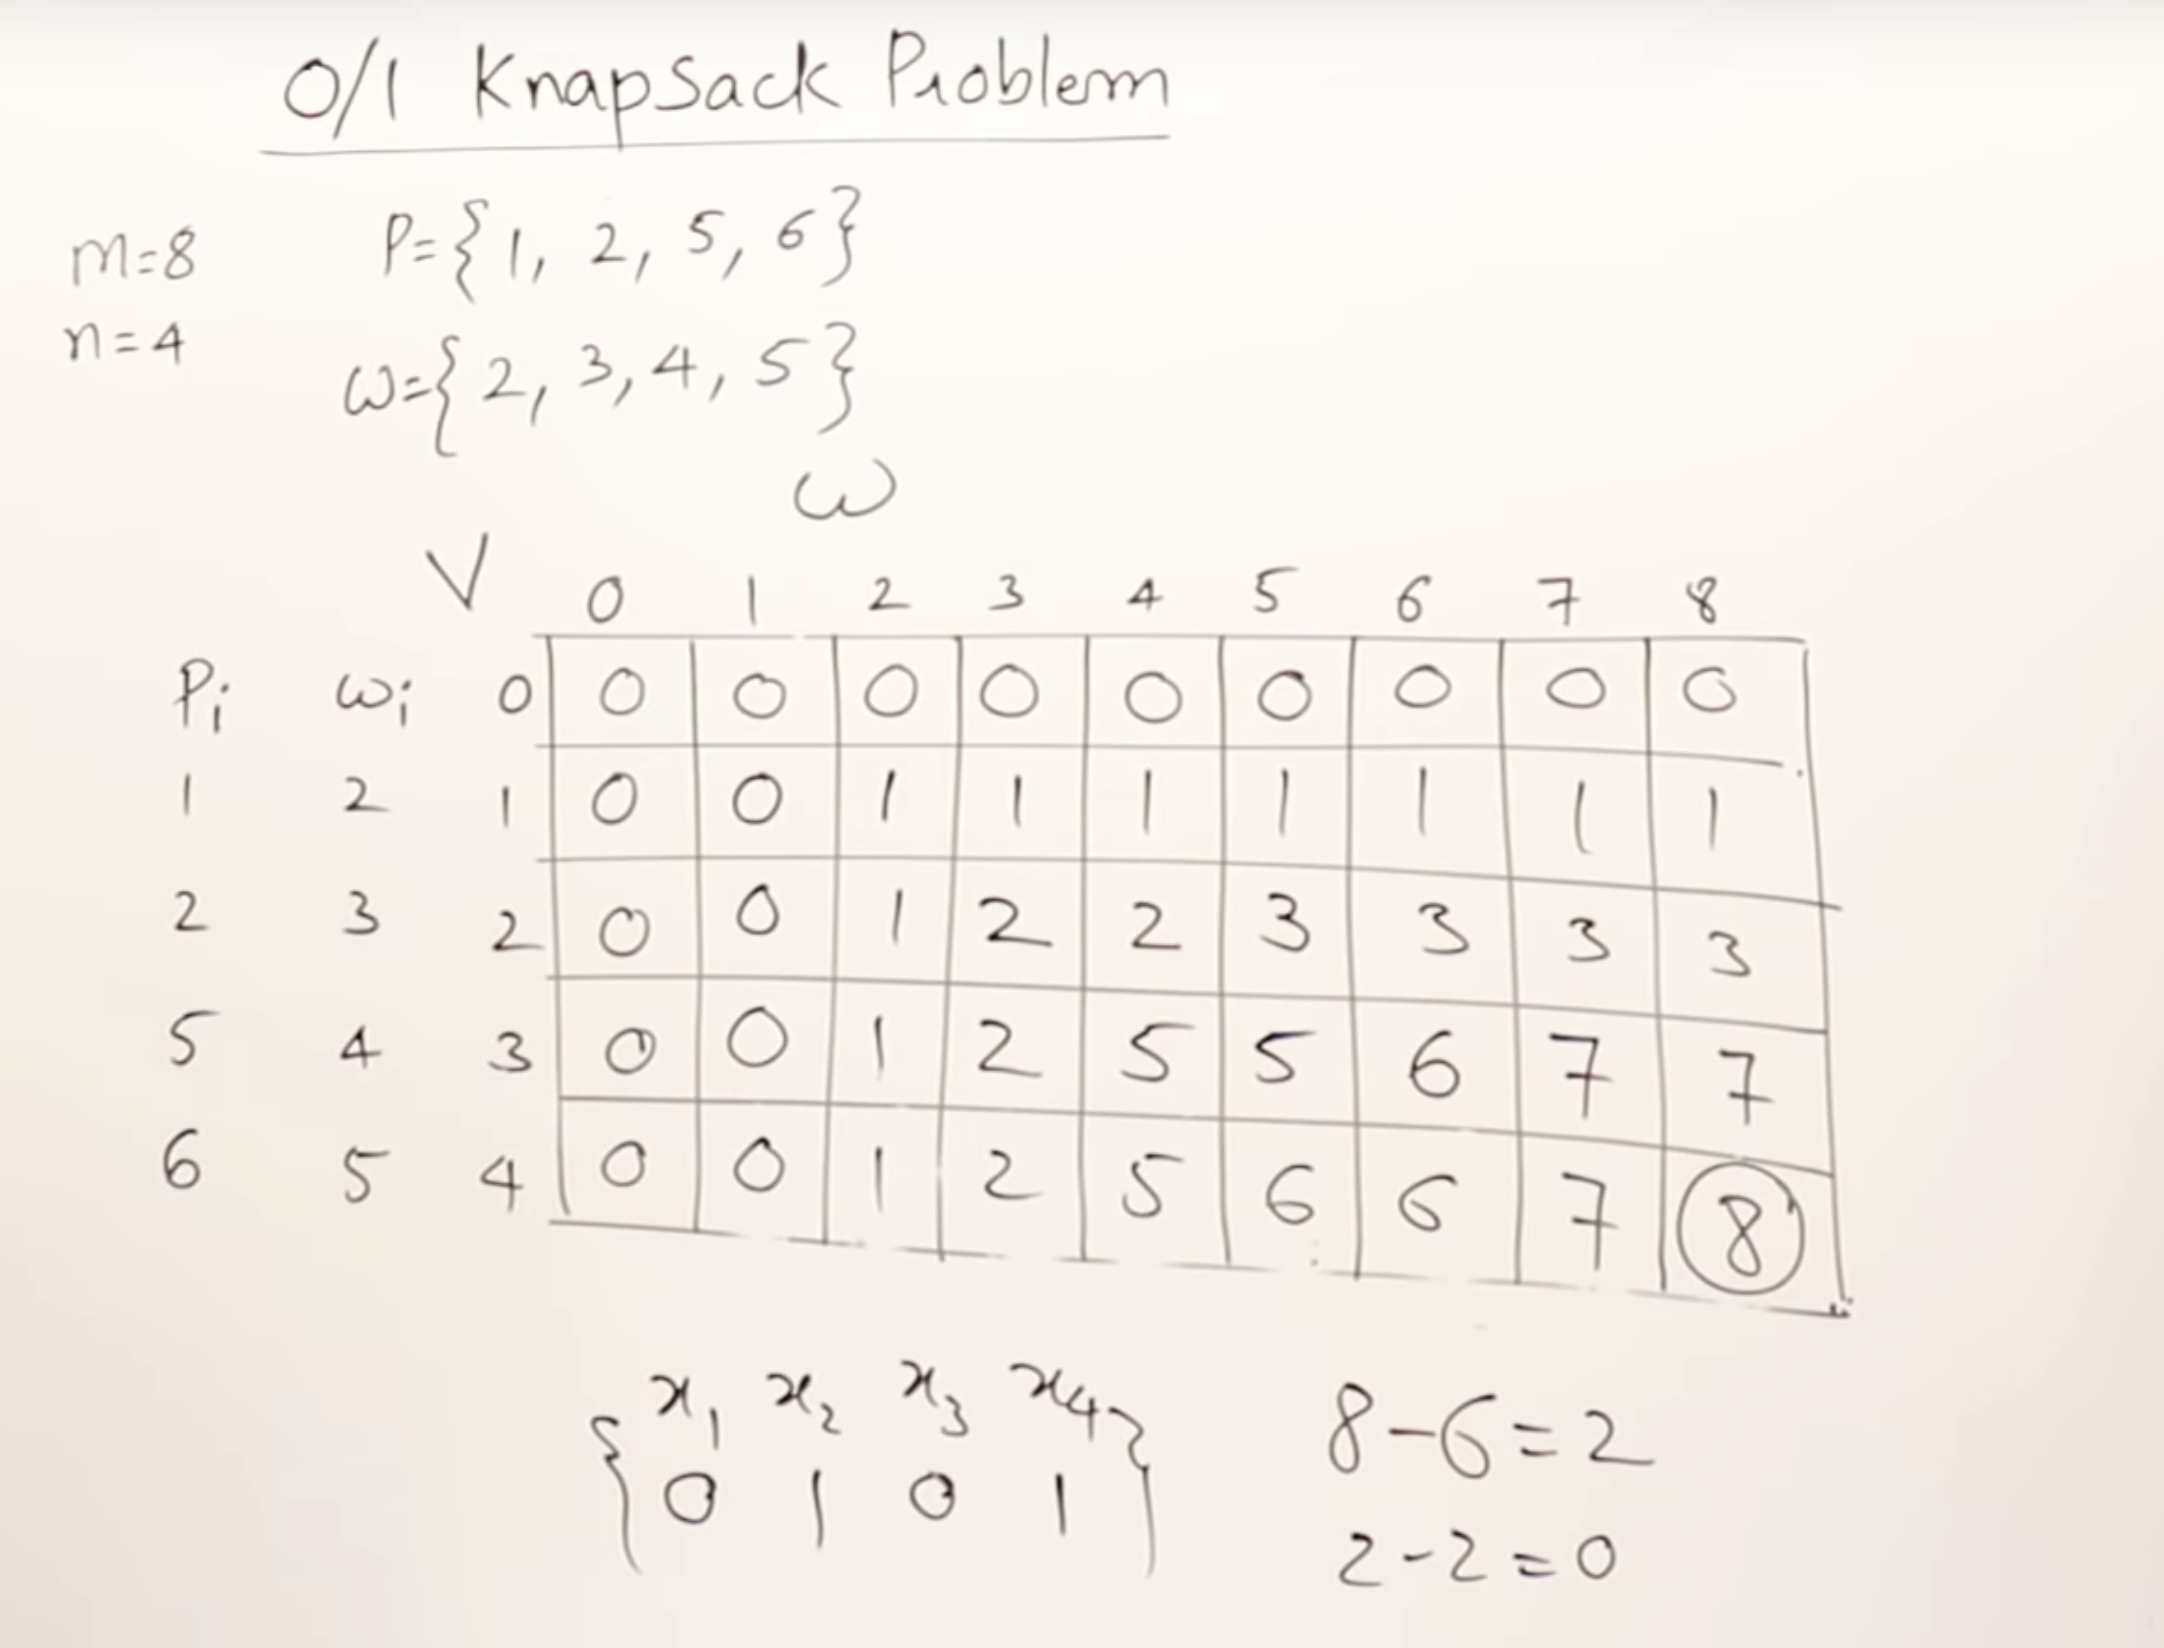 0/1 Knapsack Problem
m=8 P={1, 2, 5, 6}
n=4 ω={2, 3, 4, 5}
ω
V 0 1 2 3 4 5 6 7 8
Pi ωi 0 0 0 0 0 0 0 0 0 0
1 2 1 0 0 1 1 1 1 1 1 1
2 3 2 0 0 1 2 2 3 3 3 3
5 4 3 0 0 1 2 5 5 6 7 7
6 5 4 0 0 1 2 5 6 6 7 8
{x1 x2 x3 x4} 8-6=2
0 1 0 1 2-2=0